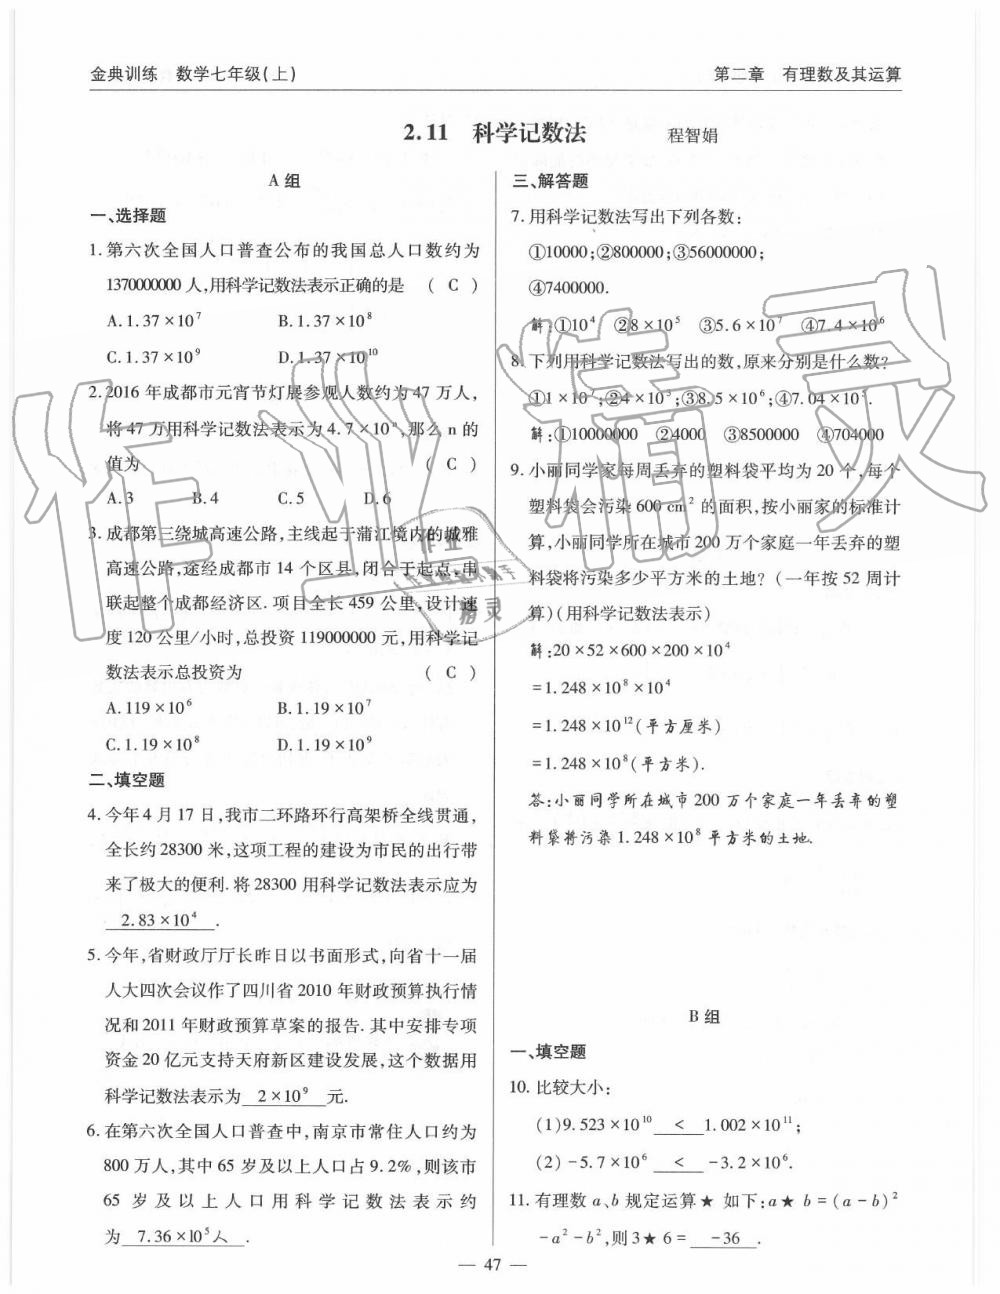 金典训练　数学七年级(上)
第二章　有理数及其运算
2.11　科学记数法　程智娟
A 组
一、选择题
1. 第六次全国人口普查公布的我国总人口数约为
1370000000 人,用科学记数法表示正确的是 ( C )
A. 1.37×10⁷　B. 1.37×10⁸
C. 1.37×10⁹　D. 1.37×10¹⁰
2. 2016 年成都市元宵节灯展参观人数约为 47 万人,
将 47 万用科学记数法表示为 4.7×10ⁿ,那么 n 的
值为 ( C )
A. 3　B. 4　C. 5　D. 6
3. 成都第三绕城高速公路,主线起于蒲江境内的城雅
高速公路,途经成都市 14 个区县,闭合于起点,串
联起整个成都经济区. 项目全长 459 公里,设计速
度 120 公里/小时,总投资 119000000 元,用科学记
数法表示总投资为 ( C )
A. 119×10⁶　B. 1.19×10⁷
C. 1.19×10⁸　D. 1.19×10⁹
二、填空题
4. 今年 4 月 17 日,我市二环路环行高架桥全线贯通,
全长约 28300 米,这项工程的建设为市民的出行带
来了极大的便利. 将 28300 用科学记数法表示应为
2.83×10⁴ .
5. 今年,省财政厅厅长昨日以书面形式,向省十一届
人大四次会议作了四川省 2010 年财政预算执行情
况和 2011 年财政预算草案的报告. 其中安排专项
资金 20 亿元支持天府新区建设发展,这个数据用
科学记数法表示为 2×10⁹ 元.
6. 在第六次全国人口普查中,南京市常住人口约为
800 万人,其中 65 岁及以上人口占 9.2%,则该市
65 岁及以上人口用科学记数法表示约
为 7.36×10⁵人 .
三、解答题
7. 用科学记数法写出下列各数:
①10000;②800000;③56000000;
④7400000.
解:①10⁴　②8×10⁵　③5.6×10⁷　④7.4×10⁶
8. 下列用科学记数法写出的数,原来分别是什么数?
①1×10⁷;②4×10³;③8.5×10⁶;④7.04×10⁵.
解:①10000000　②4000　③8500000　④704000
9. 小丽同学家每周丢弃的塑料袋平均为 20 个,每个
塑料袋会污染 600 cm² 的面积,按小丽家的标准计
算,小丽同学所在城市 200 万个家庭一年丢弃的塑
料袋将污染多少平方米的土地?(一年按 52 周计
算)(用科学记数法表示)
解:20×52×600×200×10⁴
=1.248×10⁸×10⁴
=1.248×10¹²(平方厘米)
=1.248×10⁸(平方米).
答:小丽同学所在城市 200 万个家庭一年丢弃的塑
料袋将污染 1.248×10⁸ 平方米的土地.
B 组
一、填空题
10. 比较大小:
(1)9.523×10¹⁰ < 1.002×10¹¹;
(2)-5.7×10⁶ < -3.2×10⁶.
11. 有理数 a、b 规定运算★ 如下:a★ b=(a-b)²
-a²-b²,则 3★ 6= -36 .
— 47 —
作业精灵
作业
精灵